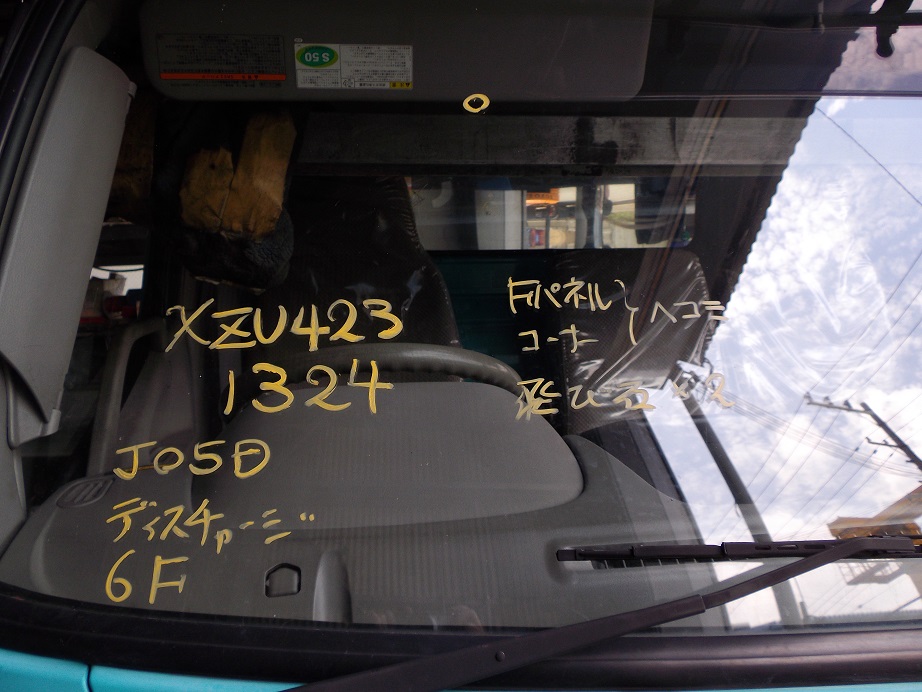 S50
XZU423
1324
J05D
ディスチャージ
6F
Fパネル
コーナー
ヘコミ
飛び石×2